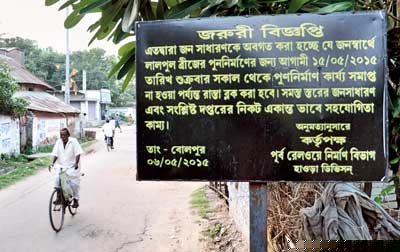 জরুরী বিজ্ঞপ্তি
এতদ্বারা জন সাধারণকে অবগত করা হচ্ছে যে জনস্বার্থে
লালপুল ব্রীজের পুননির্মাণের জন্য আগামী ১৫/০৫/২০১৫
তারিখ শুক্রবার সকাল থেকে পুণনির্মাণ কার্য্য সমাপ্ত
না হওয়া পর্য্যন্ত রাস্তা ব্লক করা হবে। সমস্ত স্তরের জনসাধারণ
এবং সংশ্লিষ্ট দপ্তরের নিকট একান্ত ভাবে সহযোগিতা
কাম্য।
অনুমত্যানুসারে
কর্তৃপক্ষ
তাং - বোলপুর
পূর্ব রেলওয়ে নির্মাণ বিভাগ
০৬/০৫/২০১৫
হাওড়া ডিভিসন্